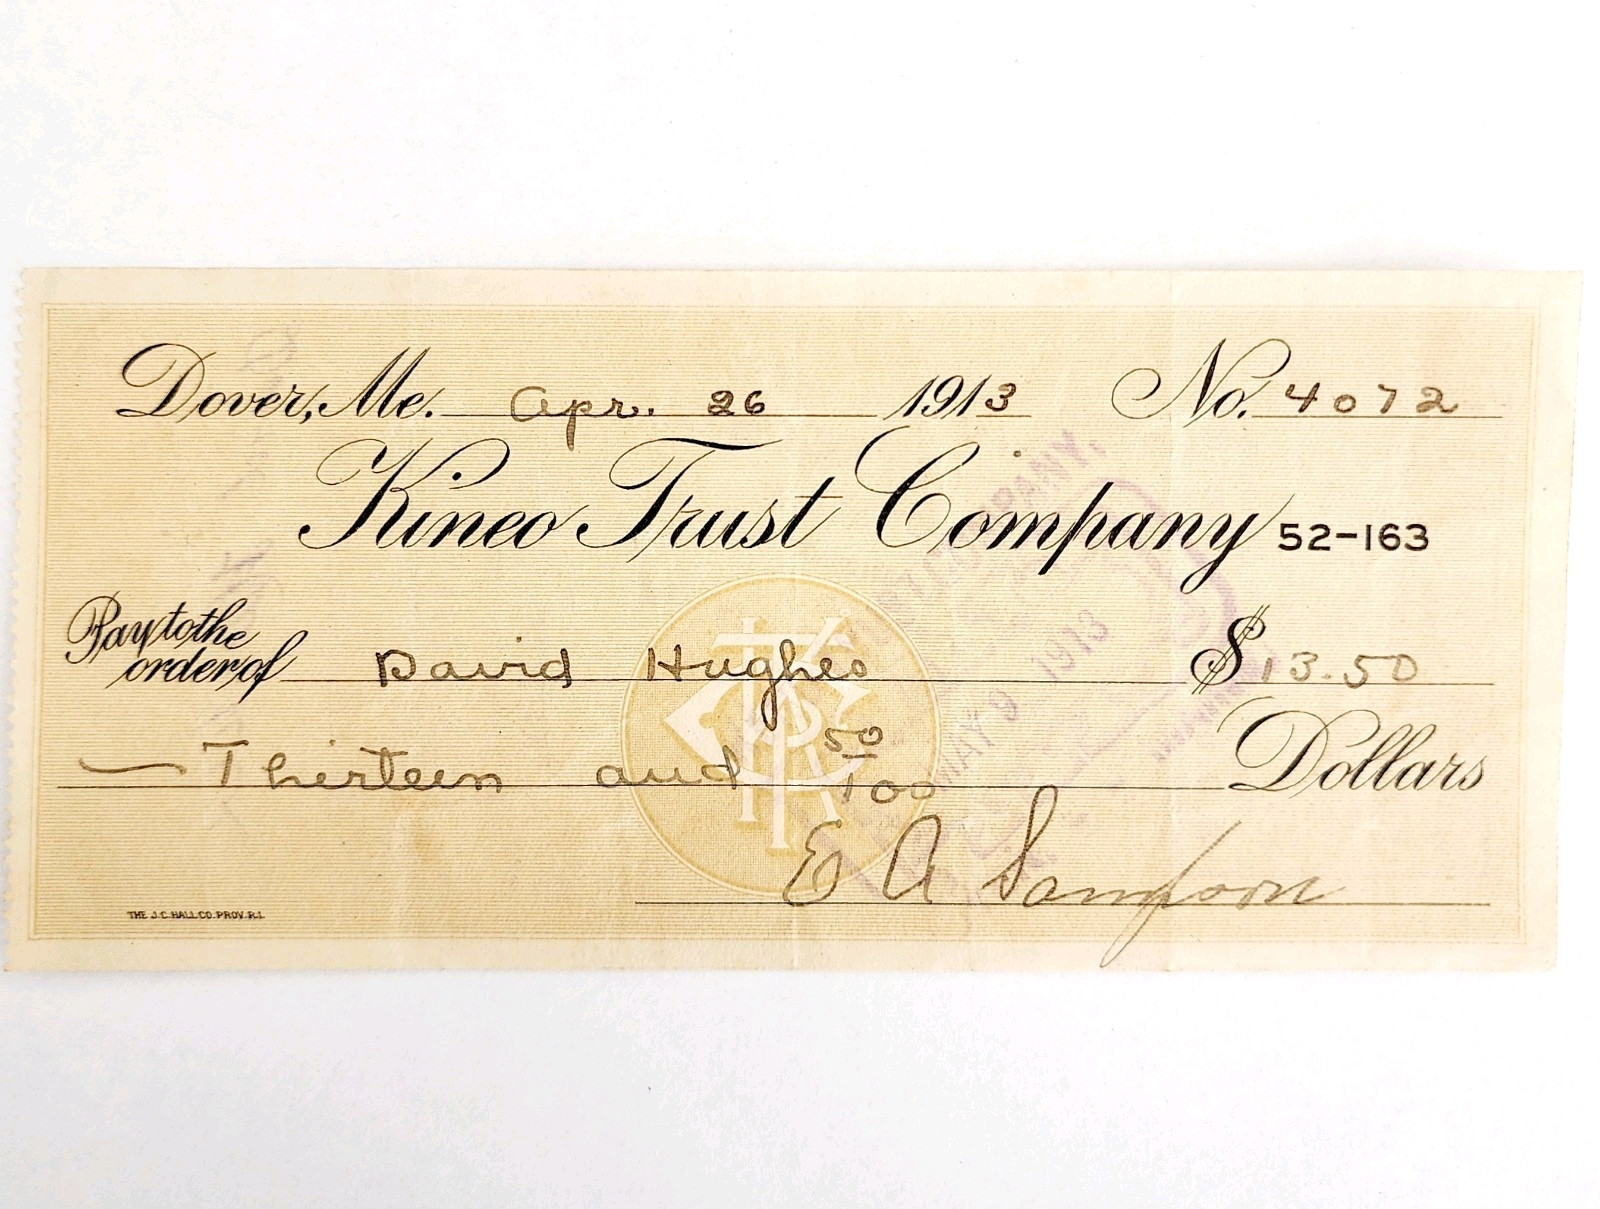 Dover, Me. Apr. 26 1913 No. 4072
Kineo Trust Company 52-163
Pay to the order of David Hughes $13.50
Thirteen and 50/100 Dollars
E A Sampson
THE J.C. HALL CO. PROV. R.I.
MAY 9 1913